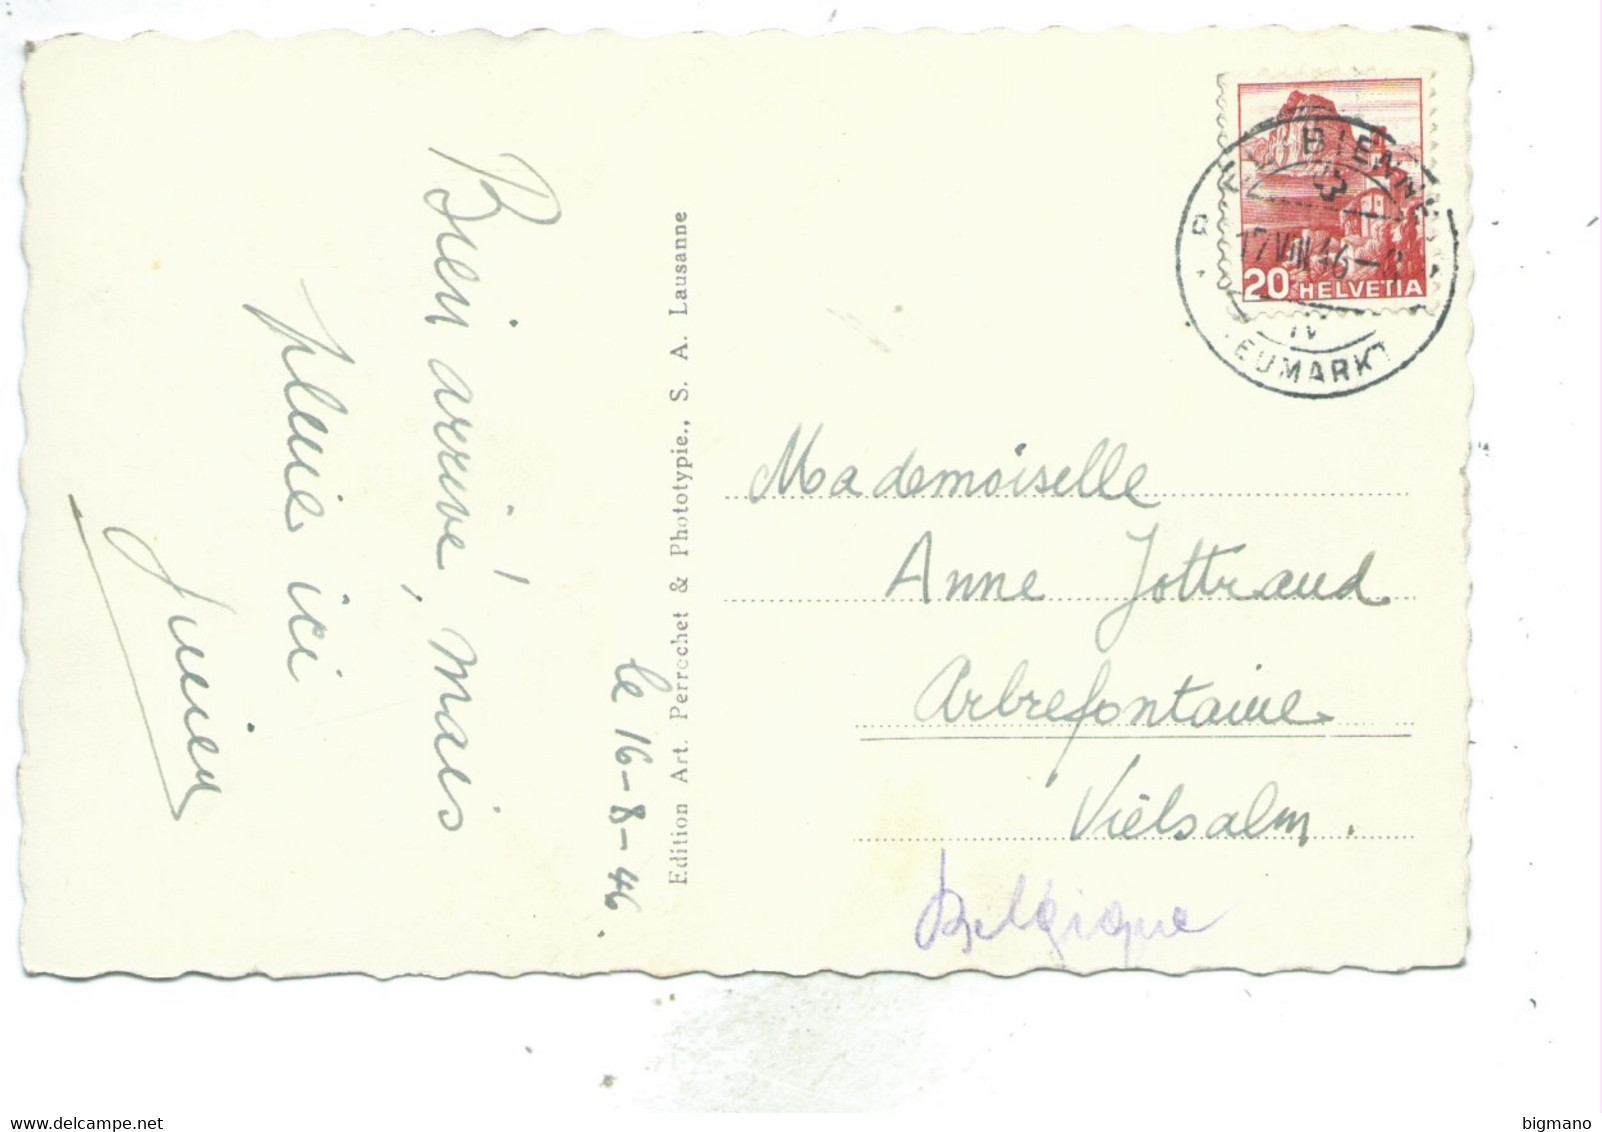 Bien arrivé, mais
pluie ici
le 16-8-46.
Edition Art. Perrochet & Phototypie., S. A. Lausanne
BIENNE
17 VIII 46
IV
NEUMARKT
20 HELVETIA
Mademoiselle
Anne Jottrand
Arbrefontaine
Vielsalm.
Belgique
bigmano